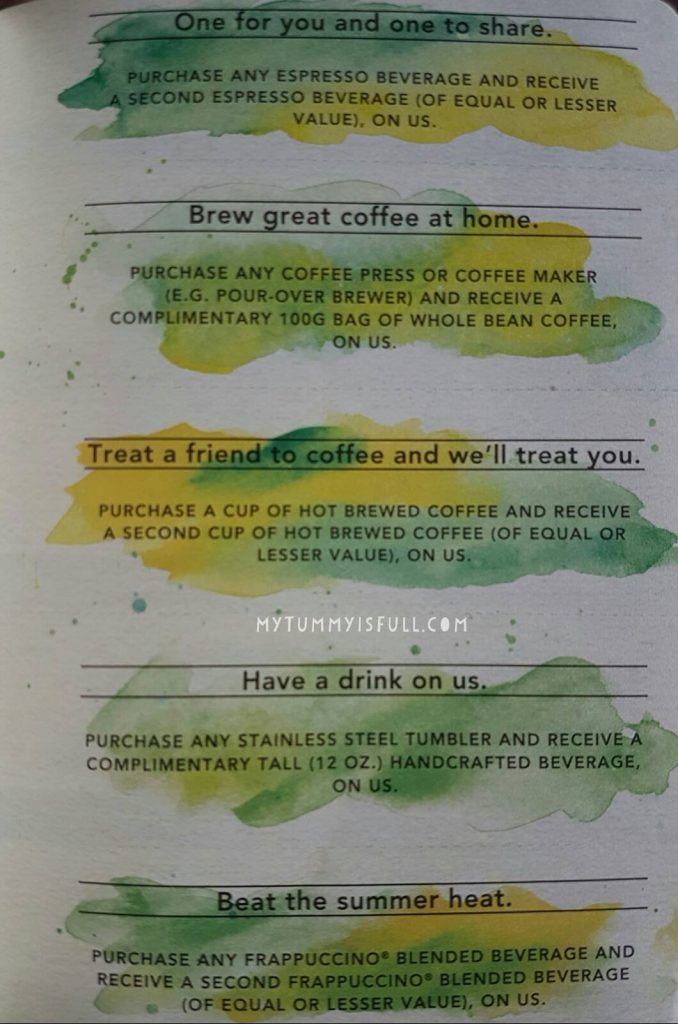 One for you and one to share.
PURCHASE ANY ESPRESSO BEVERAGE AND RECEIVE
A SECOND ESPRESSO BEVERAGE (OF EQUAL OR LESSER
VALUE), ON US.
Brew great coffee at home.
PURCHASE ANY COFFEE PRESS OR COFFEE MAKER
(E.G. POUR-OVER BREWER) AND RECEIVE A
COMPLIMENTARY 100G BAG OF WHOLE BEAN COFFEE,
ON US.
Treat a friend to coffee and we'll treat you.
PURCHASE A CUP OF HOT BREWED COFFEE AND RECEIVE
A SECOND CUP OF HOT BREWED COFFEE (OF EQUAL OR
LESSER VALUE), ON US.
MYTUMMYISFULL.COM
Have a drink on us.
PURCHASE ANY STAINLESS STEEL TUMBLER AND RECEIVE A
COMPLIMENTARY TALL (12 OZ.) HANDCRAFTED BEVERAGE,
ON US.
Beat the summer heat.
PURCHASE ANY FRAPPUCCINO® BLENDED BEVERAGE AND
RECEIVE A SECOND FRAPPUCCINO® BLENDED BEVERAGE
(OF EQUAL OR LESSER VALUE), ON US.